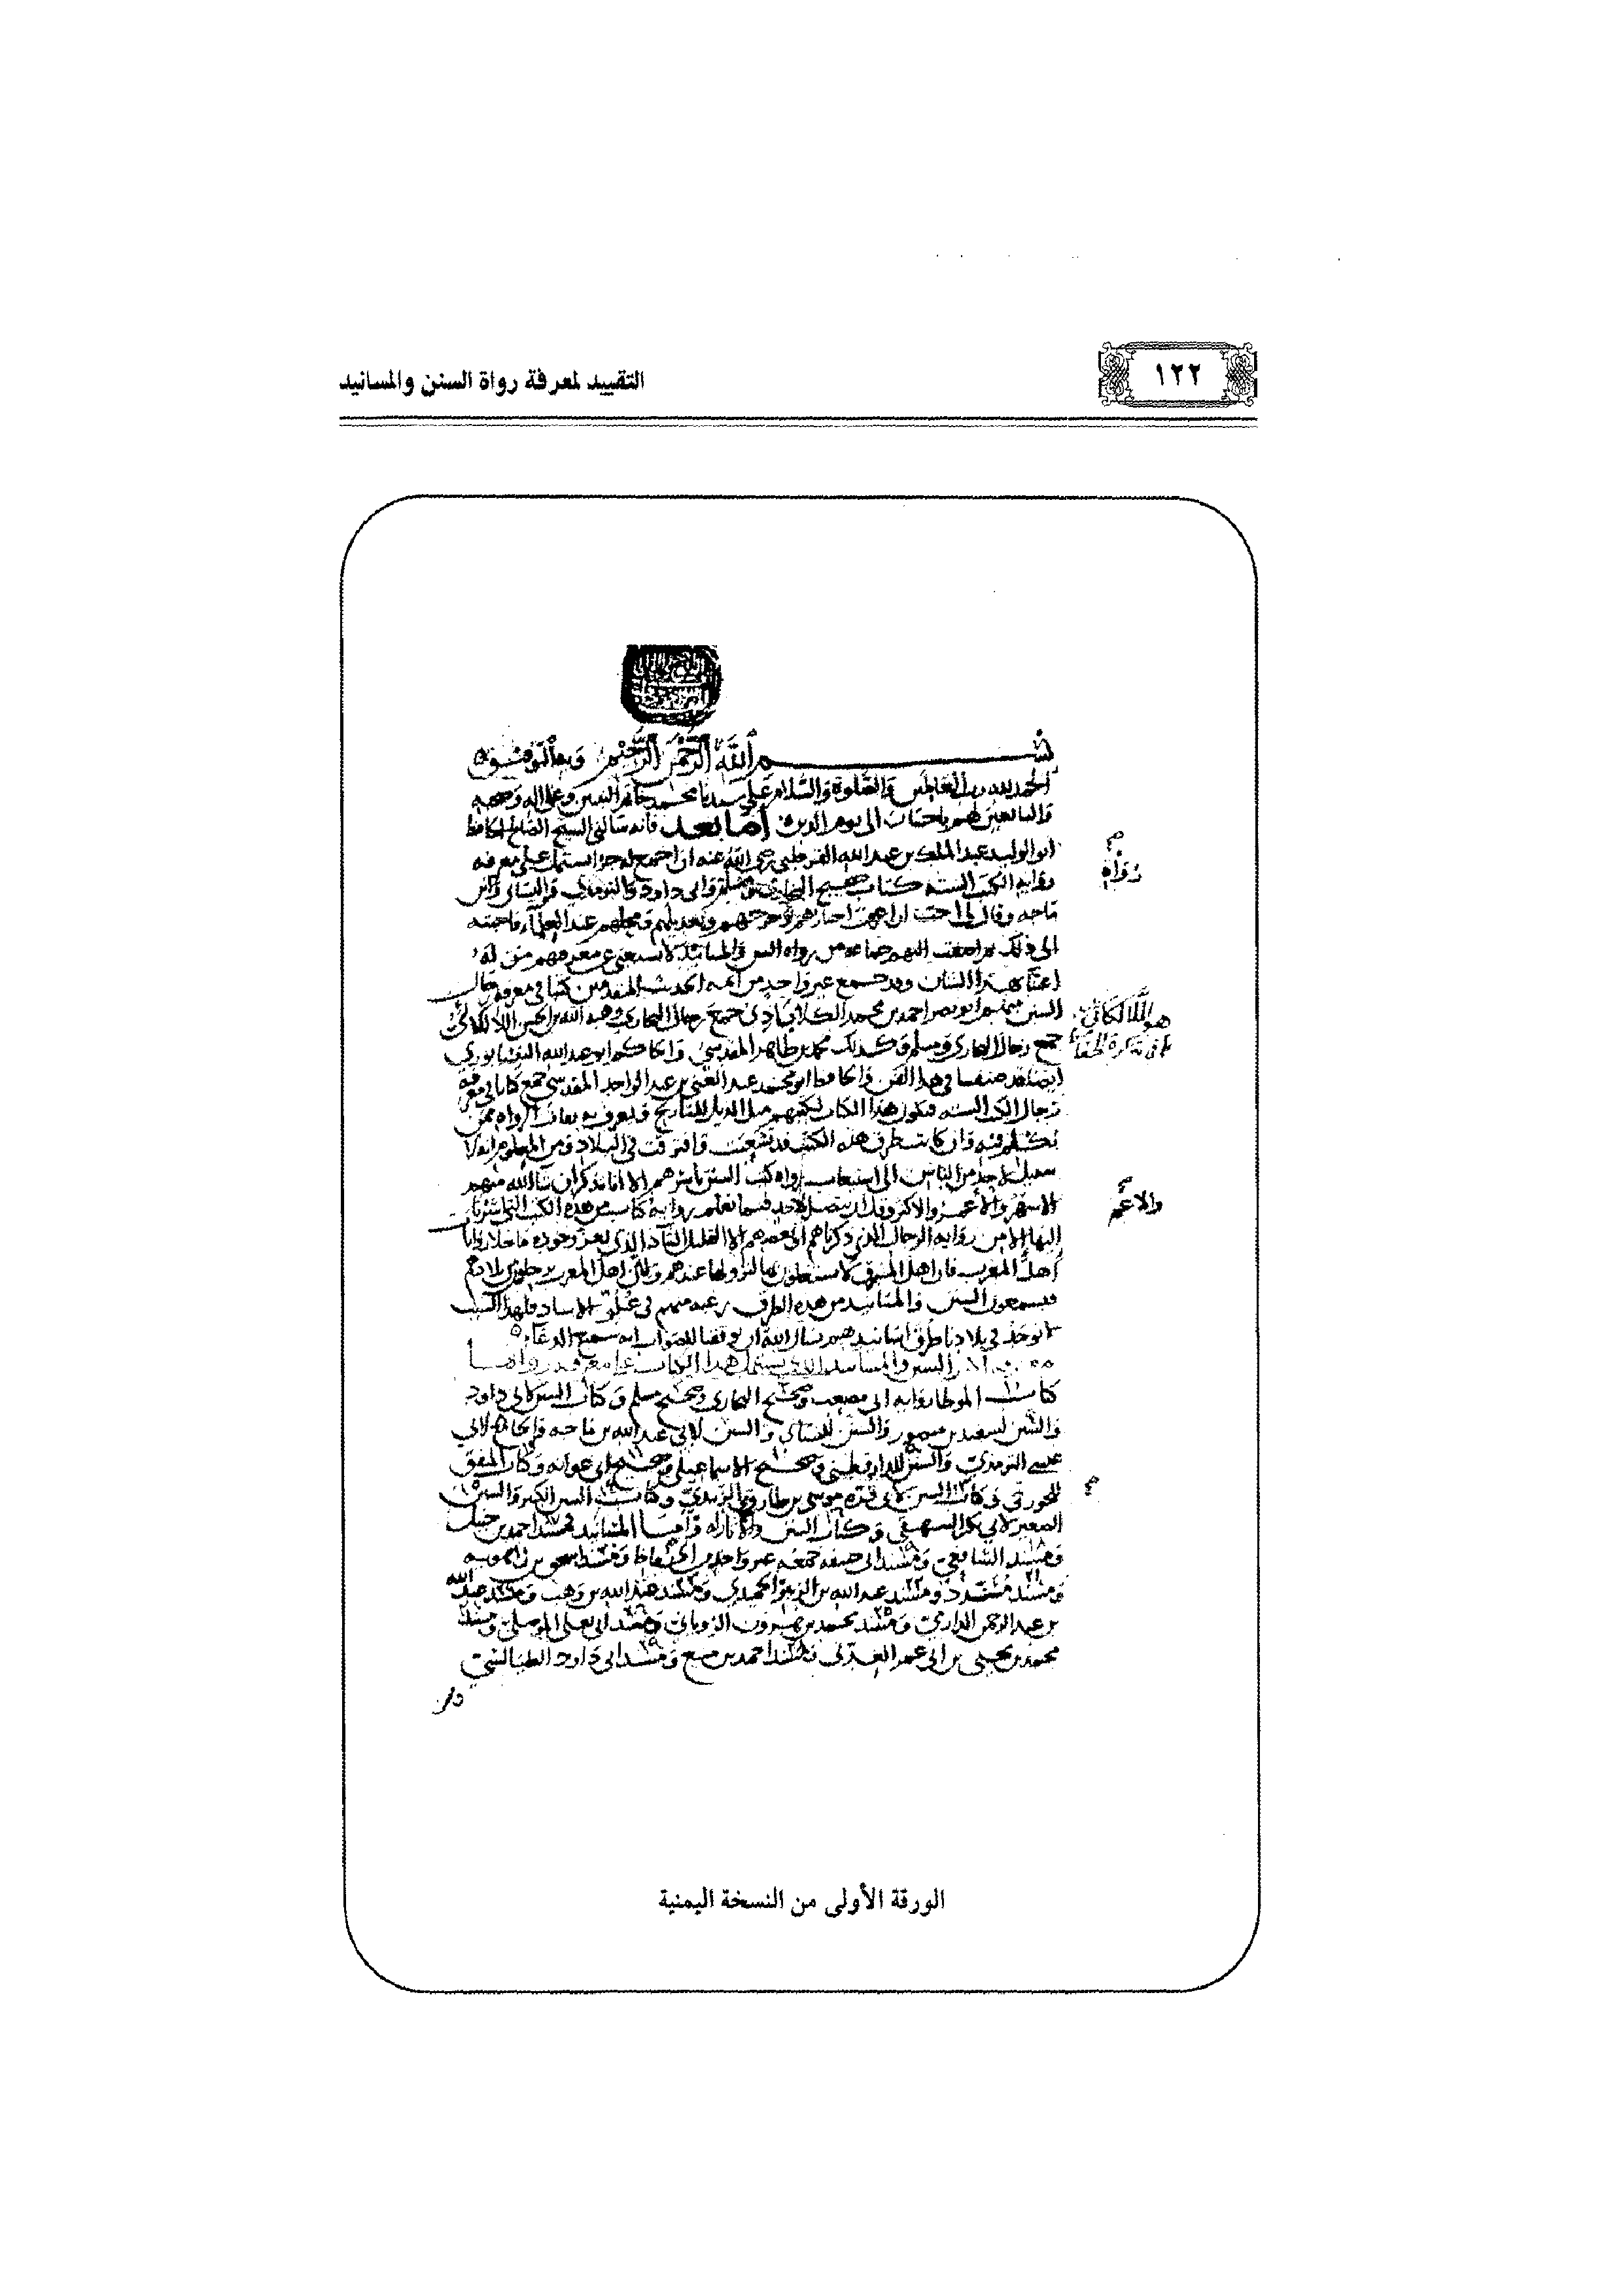 التقييد لمعرفة رواة السنن والمسانيد
١٢٢
بسم الله الرحمن الرحيم وبه التوفيق
الحمد لله رب العالمين والصلوة والسلام على سيدنا محمد خاتم النبيين وعلى اله وصحبه
والتابعين لهم باحسان الى يوم الدين أما بعد فانه سالني الشيخ الصالح الحافظ
ابو الوليد عبد الملك بن عبد الله القرطبي رضي الله عنه ان اجمع له جزا يشتمل على معرفة
رواية الكتب الستة كتاب صحيح البخاري ومسلم وابي داود والترمذي والنسائي وابن
رواة
ماجه وقال لي احب ان اعرف اخبارهم وتعديلهم ومحلهم عند العلماء فاجبته
الى ذلك ثم اضفت اليهم جماعة من رواة السنن والمسانيد لا يستغنى عن معرفتهم من له
اعتنا بهذا الشان وقد جمع غير واحد من ايمة الحديث المتقدمين كتبا في معرفة رجال
السنن منهم ابو نصر احمد بن محمد الكلاباذي جمع رجال البخاري وهبة الله بن الحسن اللالكائي
هو اللالكائي
جمع رجال البخاري ومسلم وكذلك محمد بن طاهر المقدسي والحاكم ابو عبد الله النيسابوري
ايضا قد صنفا في هذا الفن والحافظ ابو محمد عبد الغني بن عبد الواحد المقدسي جمع كتابا في معرفة
رجال الكتب الستة فيكون هذا الكتاب لكتبهم مثل الذيل للتاريخ
وان كانت طرق هذه الكتب قد تشعبت وافترقت في البلاد ومن المعلوم انه لا
سبيل لاحد من الناس الى استيعاب رواة كتب السنن باسرهم الا انا نذكر ان شا الله منهم
الاشهر والاعم والاكثر وقل ان يتصل لاحد فيما نعلم رواية كتاب من هذه الكتب التي اشرنا
والاعم
اليها الا من رواية الرجال الذين ذكرناهم او بعضهم الا القليل الشاذ الذي يعز وجوده ما خلا روايات
اهل المغرب فان اهل المشرق لا يشتغلون بها لنزولها عندهم ولان اهل المغرب يرحلون الى بلادهم
فيسمعون السنن والمسانيد من هذه الطرق رغبة منهم في علو الاسناد فلهذا السبب
لا توجد في بلادنا طرق اسانيدهم نسال الله ان يوفقنا للصواب انه سميع الدعاء
السنن والمسانيد يشتمل هذا الكتاب على معرفة رواتها
كتاب الموطا رواية ابي مصعب وصحيح البخاري وصحيح مسلم وكتاب السنن لابي داود
والسنن لسعيد بن منصور والسنن للنسائي والسنن لابي عبد الله بن ماجه والجامع لابي
عيسى الترمذي والسنن للدارقطني وصحيح الاسماعيلي وصحيح ابي عوانة وكتاب المتفق
للجوزقي وكتاب السنن لابي قرة موسى بن طارق الزبيدي وكتاب السنن الكبير والسنن
الصغير لابي بكر البيهقي وكتاب السنن والاثار له وأما المسانيد فمسند احمد بن حنبل
ومسند الشافعي ومسند ابي حنيفة جمعه غير واحد من الحفاظ ومسند اسحق بن راهويه
ومسند مسدد ومسند عبد الله بن الزبير الحميدي ومسند عبد الله بن وهب ومسند عبد الله
بن عبد الرحمن الدارمي ومسند محمد بن هرون الروياني ومسند ابي يعلى الموصلي ومسند
محمد بن يحيى بن ابي عمر العدني ومسند احمد بن منيع ومسند ابي داود الطيالسي
الورقة الأولى من النسخة اليمنية